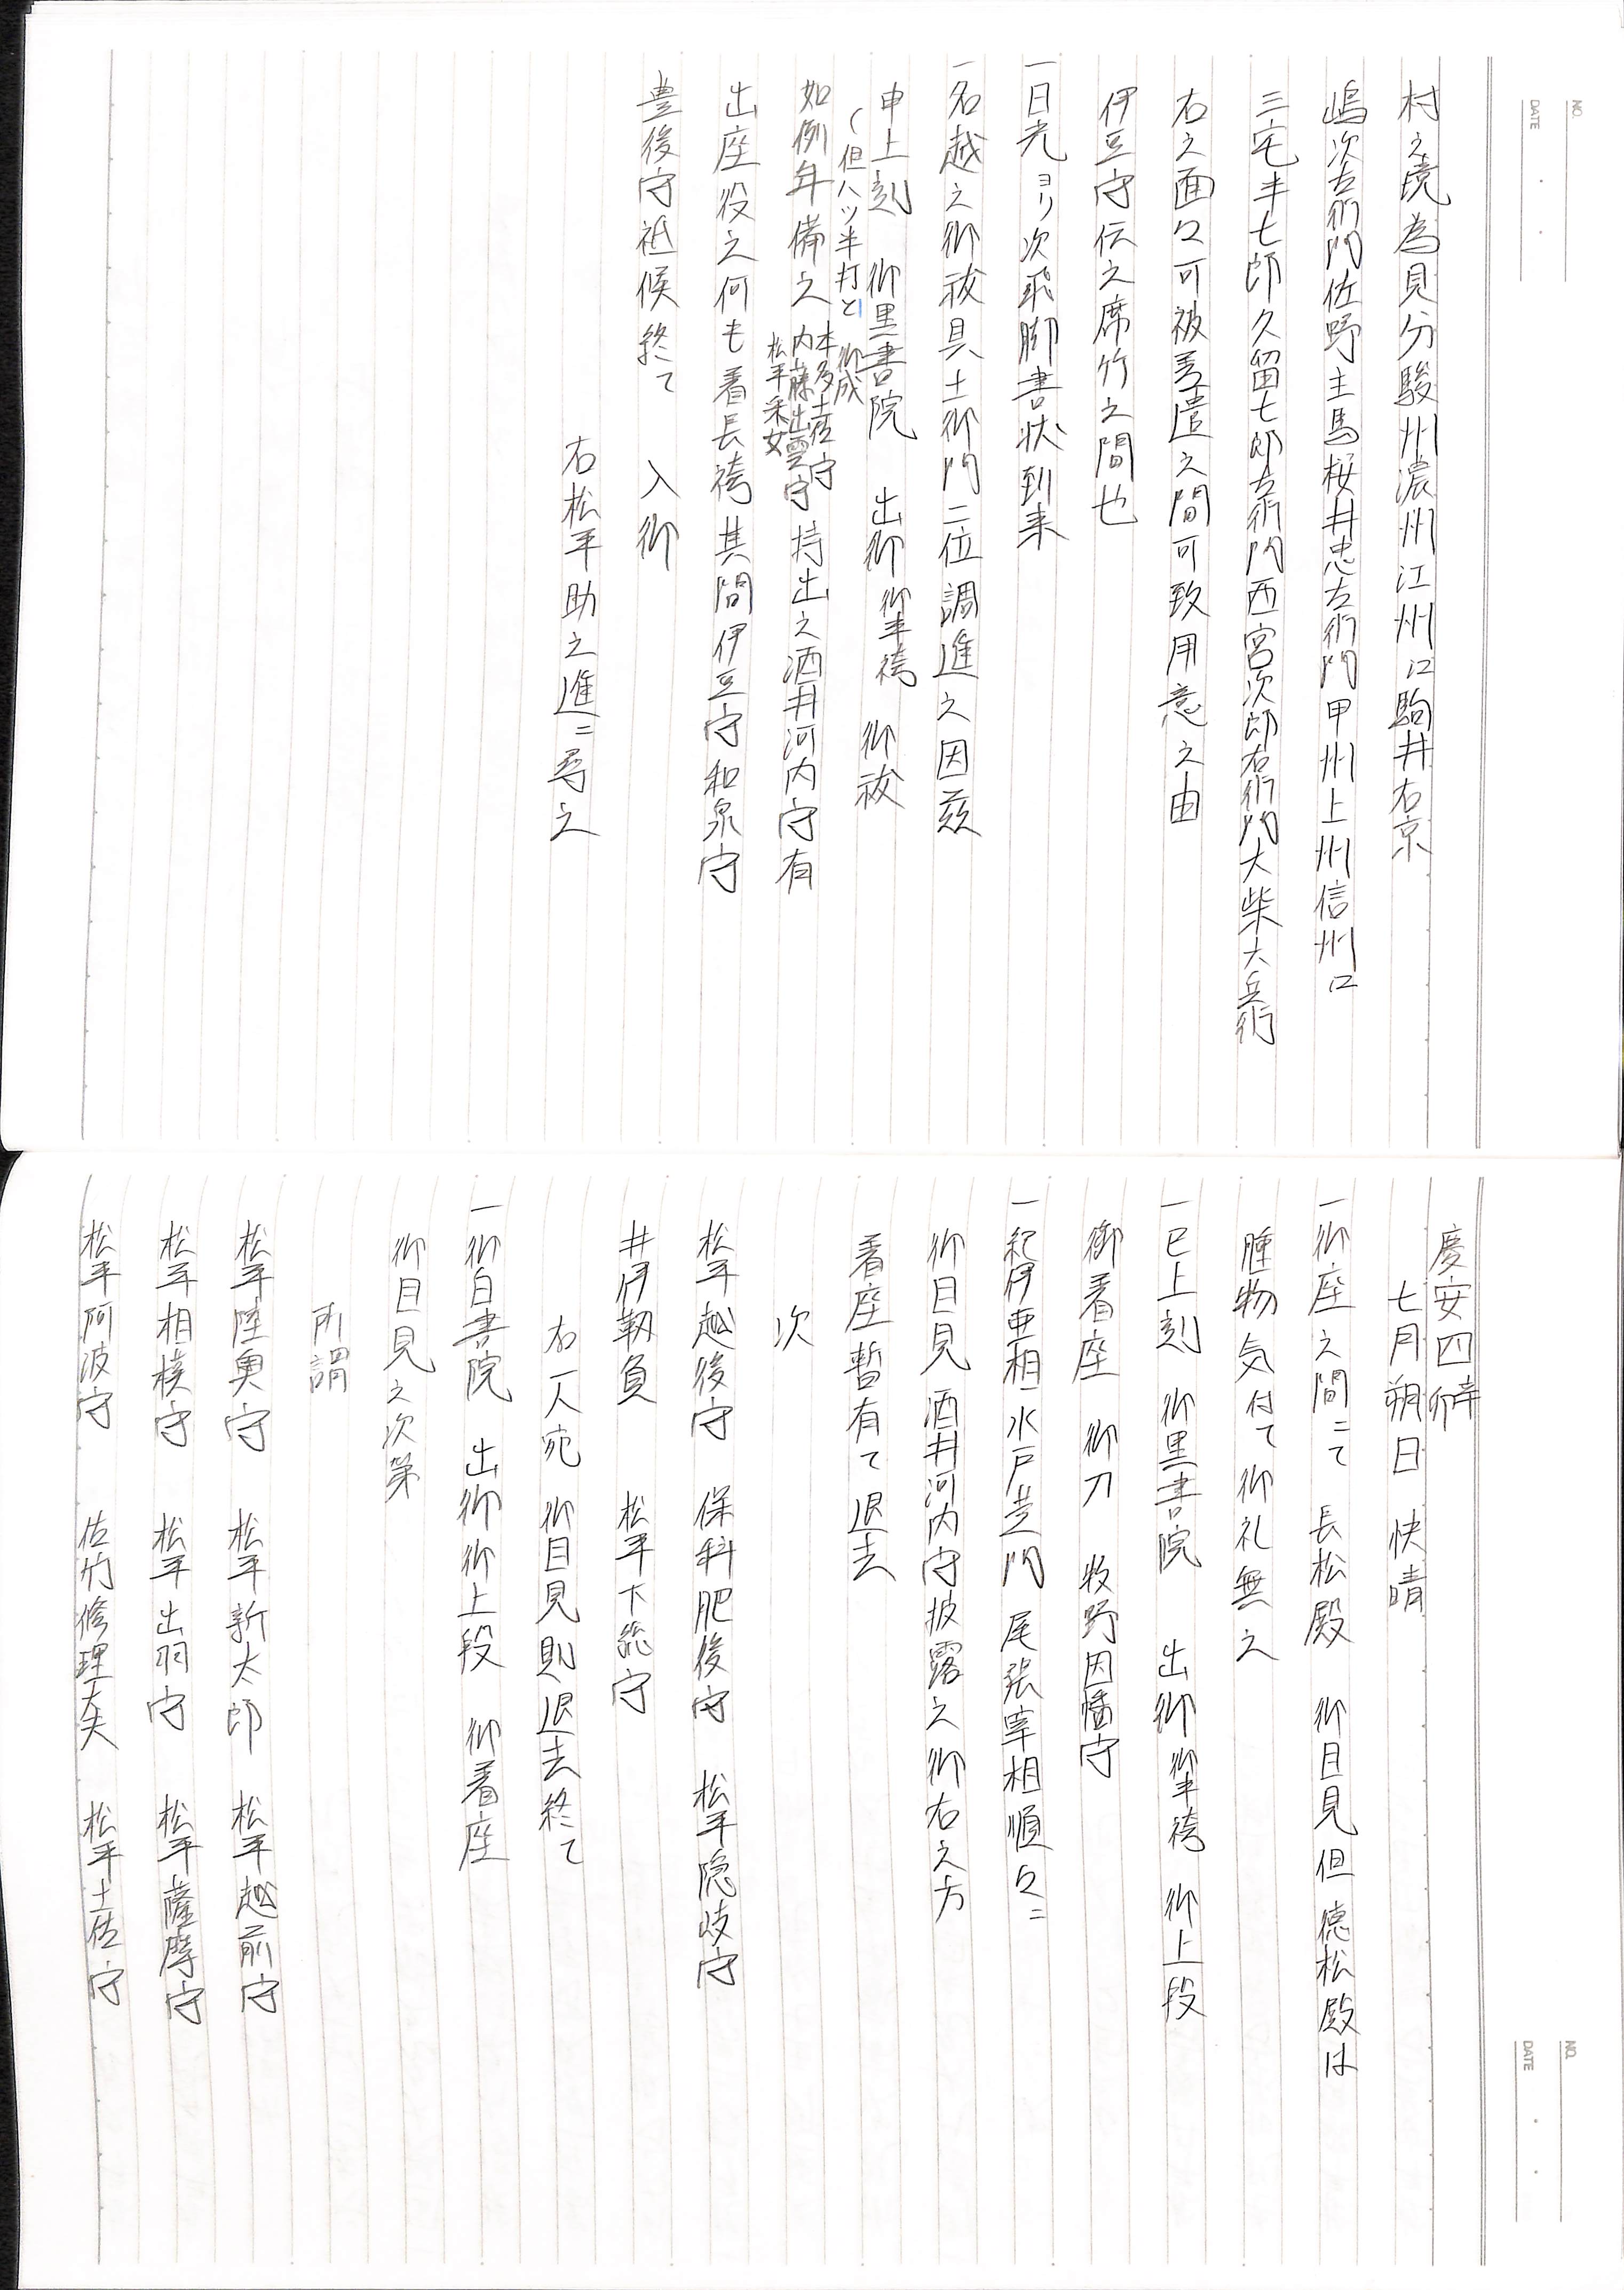 村之境為見分駿州濃州江州江駒井右京
嶋次左衛門佐野主馬桜井忠左衛門甲州上州信州江
三宅半七郎久留七郎左衛門西宮次郎右衛門大柴六兵衛
右之面々可被差遣之間可致用意之由
伊豆守伝之席竹之間也
一日光ヨリ次飛脚書状到来
一名越之御祓具土御門二位調進之因茲
申上刻 御黒書院 出御 御半袴 御祓
(但八ツ半打と 御成
如例年備之 本多土佐守 内藤出雲守 松平采女 持出之酒井河内守有
出座役之何も着長袴其間伊豆守和泉守
豊後守祗候終て 入御
右松平助之進ニ尋之
慶安四辛卯
七月朔日 快晴
一御座之間ニて 長松殿 御目見但徳松殿は
腫物気付て御礼無之
一巳上刻 御黒書院 出御 御半袴 御上段
御着座 御刀 牧野因幡守
一紀伊亜相水戸黄門尾張宰相順々ニ
御目見 酒井河内守披露之御右之方
着座暫有て退去
次
松平越後守 保科肥後守 松平隠岐守
井伊靭負 松平下総守
右一人宛 御目見則退去終て
一御白書院 出御 御上段 御着座
御目見之次第
所謂
松平陸奥守 松平新太郎 松平越前守
松平相模守 松平出羽守 松平薩摩守
松平阿波守 佐竹修理大夫 松平土佐守
NO.
DATE
NO.
DATE